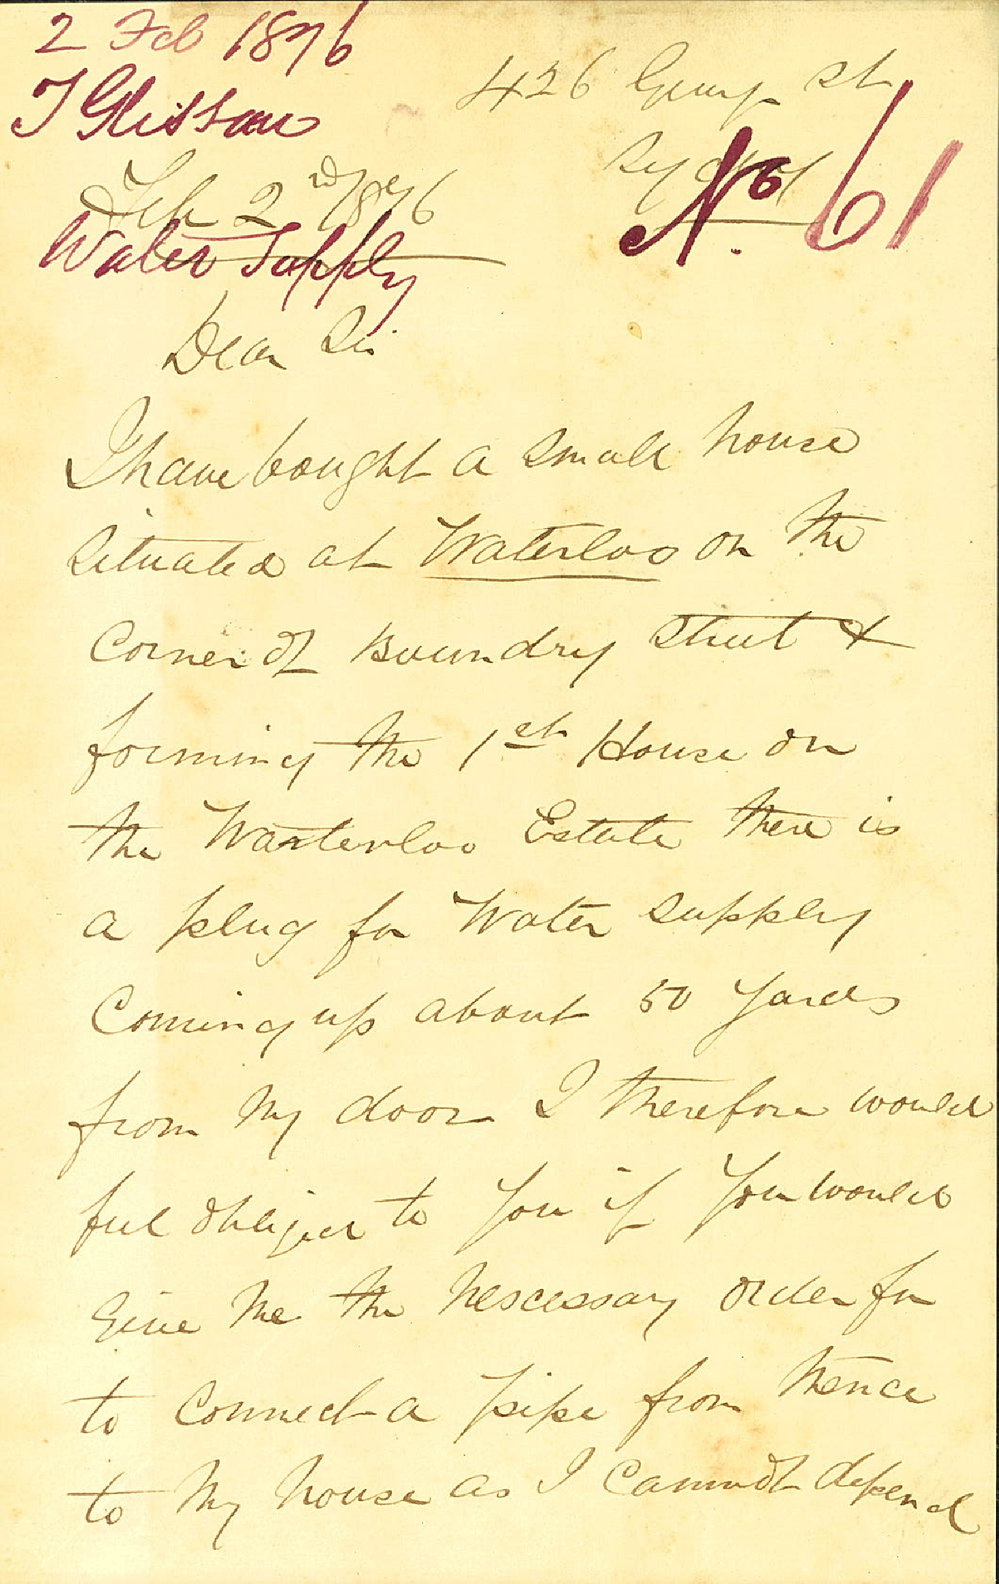 2 Feb 1876
T Glissan
426 George St
Sydney
No. 61
Feb 2nd 1876
Water Supply
Dear Sir
I have bought a small house
situated at Waterloo on the
Corner of Boundry Street &
forming the 1st House on
the Warterloo Estate there is
a plug for Water supply
Coming up about 50 Yards
from My door I therefore would
feel obliged to You if You would
Give Me the Nescessary Order for
to Connect a pipe from thence
to My house as I Cannot depend